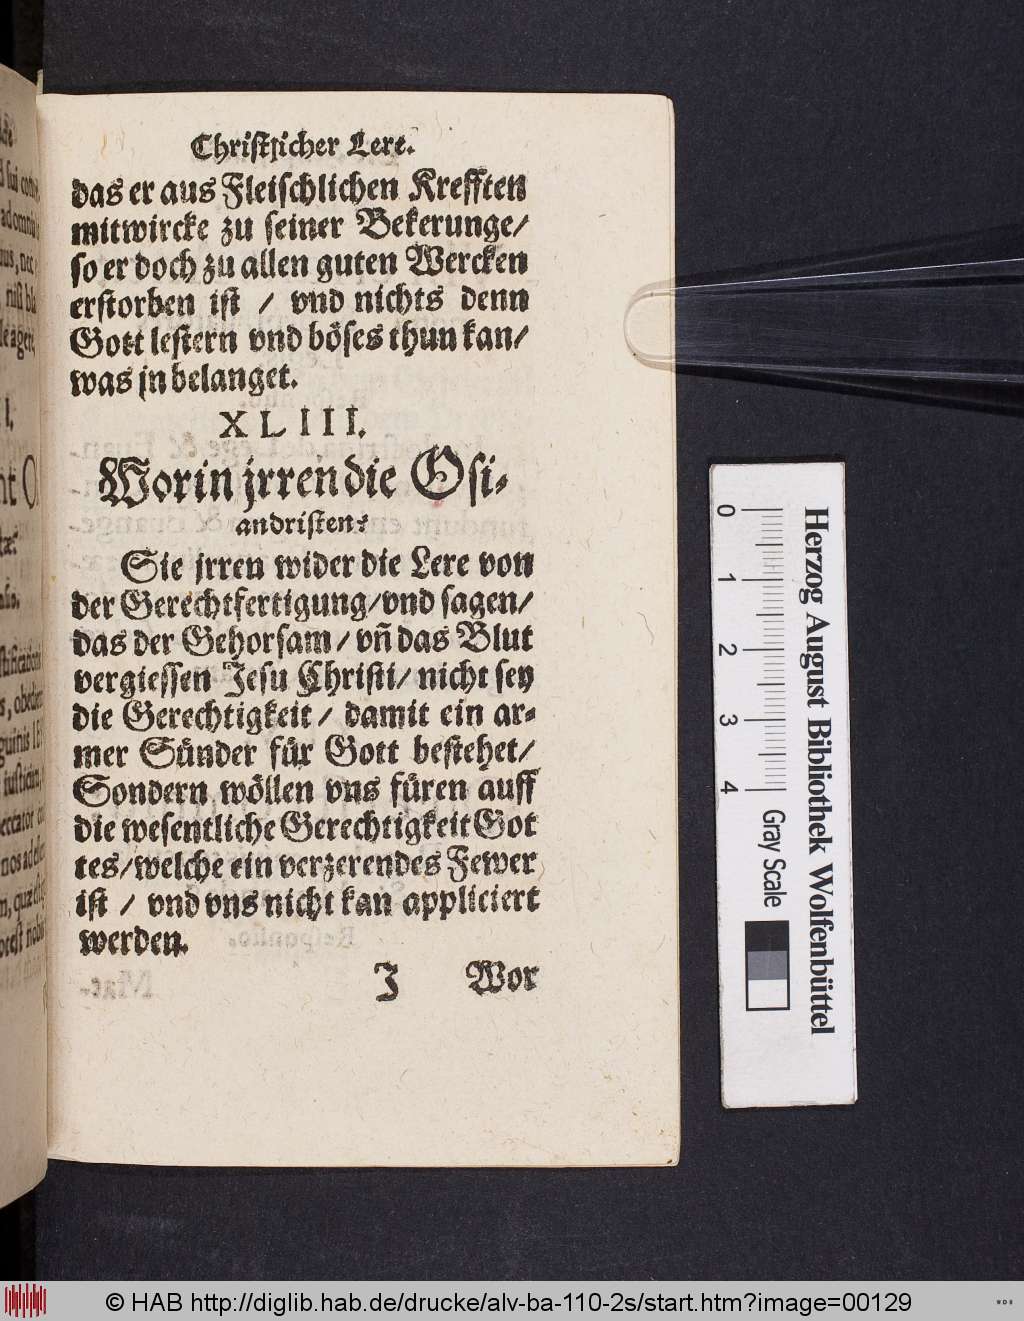 Christlicher Lere.
das er aus Fleischlichen Krefften
mitwircke zu seiner Bekerunge/
so er doch zu allen guten Wercken
erstorben ist / vnd nichts denn
Gott lestern vnd böses thun kan/
was jn belanget.
XLIII.
Worin jrren die Osi-
andristen?
Sie jrren wider die Lere von
der Gerechtfertigung/vnd sagen/
das der Gehorsam/ vñ das Blut
vergiessen Jesu Christi/ nicht sey
die Gerechtigkeit/ damit ein ar-
mer Sünder für Gott bestehet/
Sondern wöllen vns füren auff
die wesentliche Gerechtigkeit Got
tes/welche ein verzerendes Fewer
ist / vnd vns nicht kan appliciert
werden.
J Wor
Herzog August Bibliothek Wolfenbüttel
0 1 2 3 4 Gray Scale
© HAB http://diglib.hab.de/drucke/alv-ba-110-2s/start.htm?image=00129